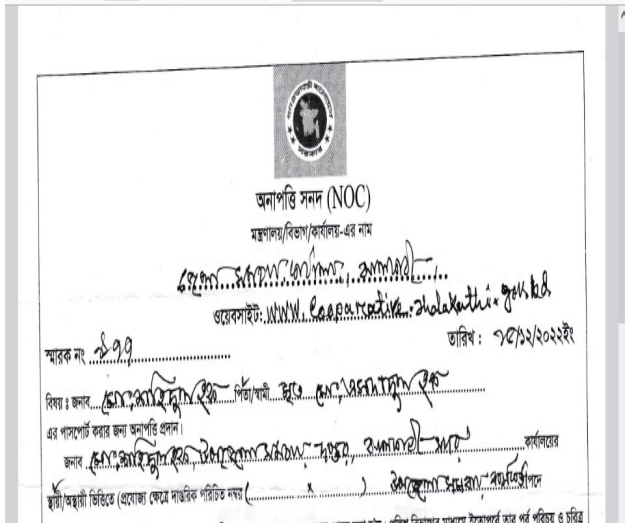 অনাপত্তি সনদ (NOC)
মন্ত্রণালয়/বিভাগ/কার্যালয়-এর নাম
জেলা সমবায় কার্যালয়, ঝালকাঠী
ওয়েবসাইট: www.cooparative.Jhalakathi.gov.bd
স্মারক নং ৫৭৭ তারিখ : /১২/২০২২ইং
বিষয় ঃ জনাব মোঃ শহিদুল হক পিতা/স্বামী মৃত মোঃ হক
এর পাসপোর্ট করার জন্য অনাপত্তি প্রদান।
জনাব মোঃ শহিদুল হক, উপজেলা সমবায় দপ্তর, ঝালকাঠী সদর কার্যালয়ের
স্থায়ী/অস্থায়ী ভিত্তিতে (প্রযোজ্য ক্ষেত্রে দাপ্তরিক পরিচিতি নম্বর ( x ) উপজেলা সমবায় কর্মকর্তা পদে